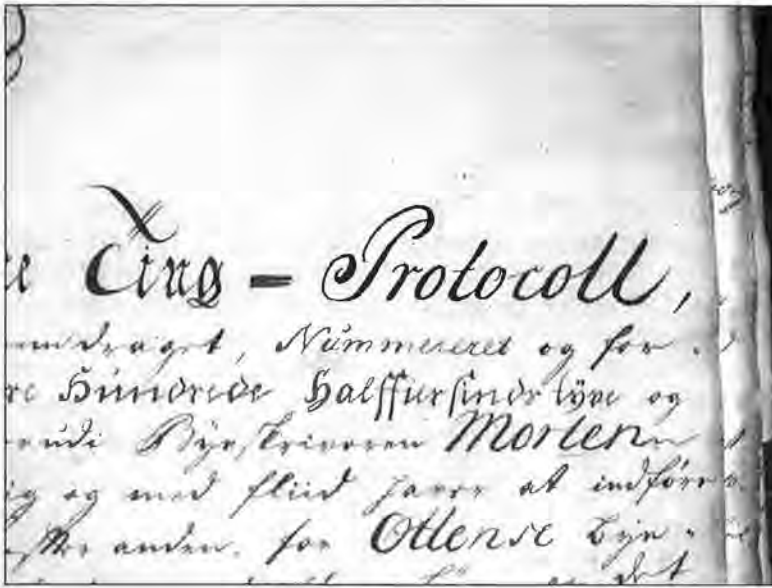 Ting = Protocoll,
draget, Nummereret og for
Hundrede Halffiersinds tÿve og
udi Bÿeskriveren Morten
og med fliid haver at indføre
anden. for Ottense Bÿe
det